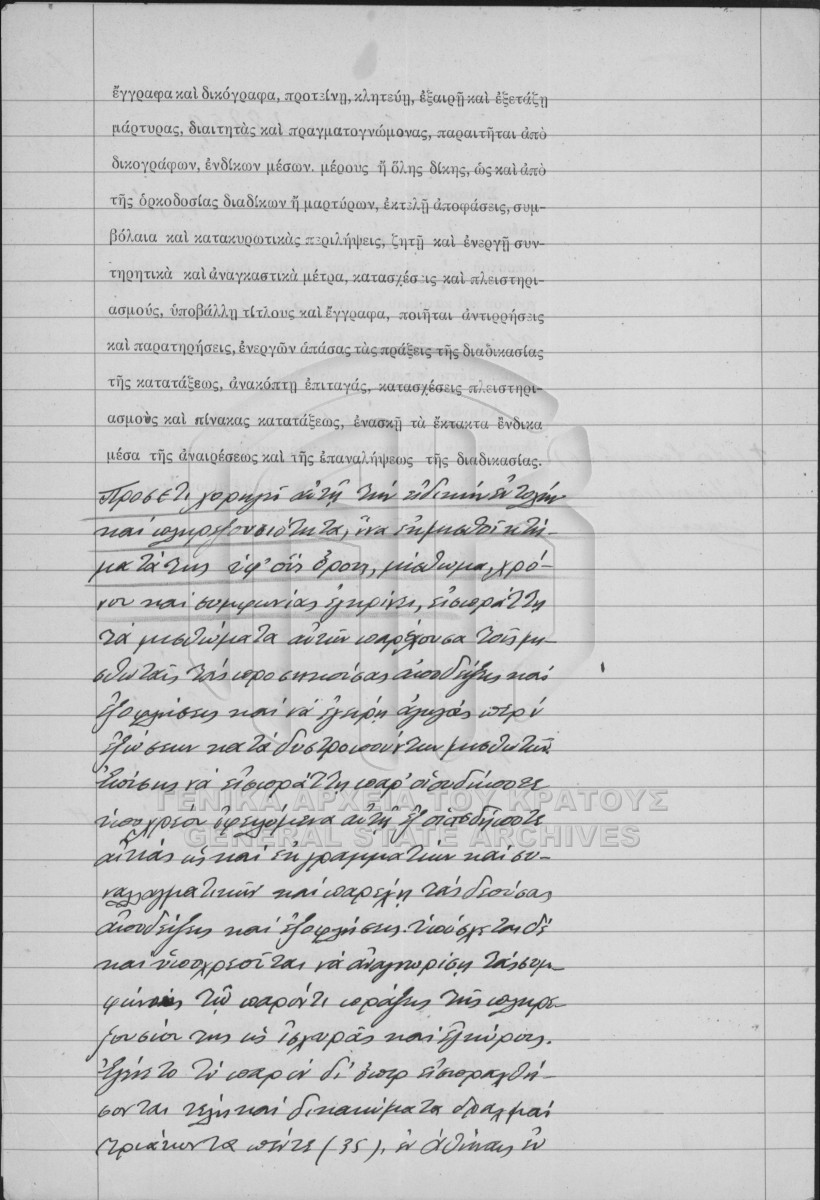 ἔγγραφα καὶ δικόγραφα, προτείνῃ, κλητεύῃ, ἐξαιρῇ καὶ ἐξετάζῃ
μάρτυρας, διαιτητὰς καὶ πραγματογνώμονας, παραιτῆται ἀπὸ
δικογράφων, ἐνδίκων μέσων. μέρους ἢ ὅλης δίκης, ὡς καὶ ἀπὸ
τῆς ὁρκοδοσίας διαδίκων ἢ μαρτύρων, ἐκτελῇ ἀποφάσεις, συμ-
βόλαια καὶ κατακυρωτικὰς περιλήψεις, ζητῇ καὶ ἐνεργῇ συν-
τηρητικὰ καὶ ἀναγκαστικὰ μέτρα, κατασχέσεις καὶ πλειστηρι-
ασμούς, ὑποβάλλῃ τίτλους καὶ ἔγγραφα, ποιῆται ἀντιρρήσεις
καὶ παρατηρήσεις, ἐνεργῶν ἁπάσας τὰς πράξεις τῆς διαδικασίας
τῆς κατατάξεως, ἀνακόπτῃ ἐπιταγάς, κατασχέσεις πλειστηρι-
ασμοὺς καὶ πίνακας κατατάξεως, ἐνασκῇ τὰ ἔκτακτα ἔνδικα
μέσα τῆς ἀναιρέσεως καὶ τῆς ἐπαναλήψεως τῆς διαδικασίας.
Προσέτι χορηγεῖ αὐτῇ τὴν εἰδικὴν ἐντολὴν
καὶ πληρεξουσιότητα, ἵνα ἐκμισθοῖ κτή-
ματά της ὑφ' οὓς ὅρους, μίσθωμα, χρό-
νον καὶ συμφωνίας ἐγκρίνει, εἰσπράττῃ
τὰ μισθώματα αὐτῶν παρέχουσα τοῖς μι-
σθωταῖς τὰς προσηκούσας ἀποδείξεις καὶ
ἐξοφλήσεις καὶ νὰ ἐγείρῃ ἀγωγὰς περὶ
ἐξώσεων κατὰ δυστροπούντων μισθωτῶν.
Ἐπίσης νὰ εἰσπράττῃ παρ' οἱουδήποτε
ὑποχρέου ὀφειλόμενα αὐτῇ ἐξ οἱασδήποτε
αἰτίας ὡς καὶ ἐκ γραμματίων καὶ συ-
ναλλαγματικῶν καὶ παρέχῃ τὰς δεούσας
ἀποδείξεις καὶ ἐξοφλήσεις. ὑπόσχεται δὲ
καὶ ὑποχρεοῦται νὰ ἀναγνωρίσῃ τὰς συμ-
φώνους τῷ παρόντι πράξεις τῆς πληρε-
ξουσίου της ὡς ἰσχυρὰς καὶ ἐγκύρους.
Ἐγένετο τὸ παρὸν δι' ὅπερ εἰσπραχθή-
σονται τέλη καὶ δικαιώματα δραχμαὶ
τριάκοντα πέντε (35), ἐν Ἀθήναις ἐν
ΓΕΝΙΚΑ ΑΡΧΕΙΑ ΤΟΥ ΚΡΑΤΟΥΣ
GENERAL STATE ARCHIVES